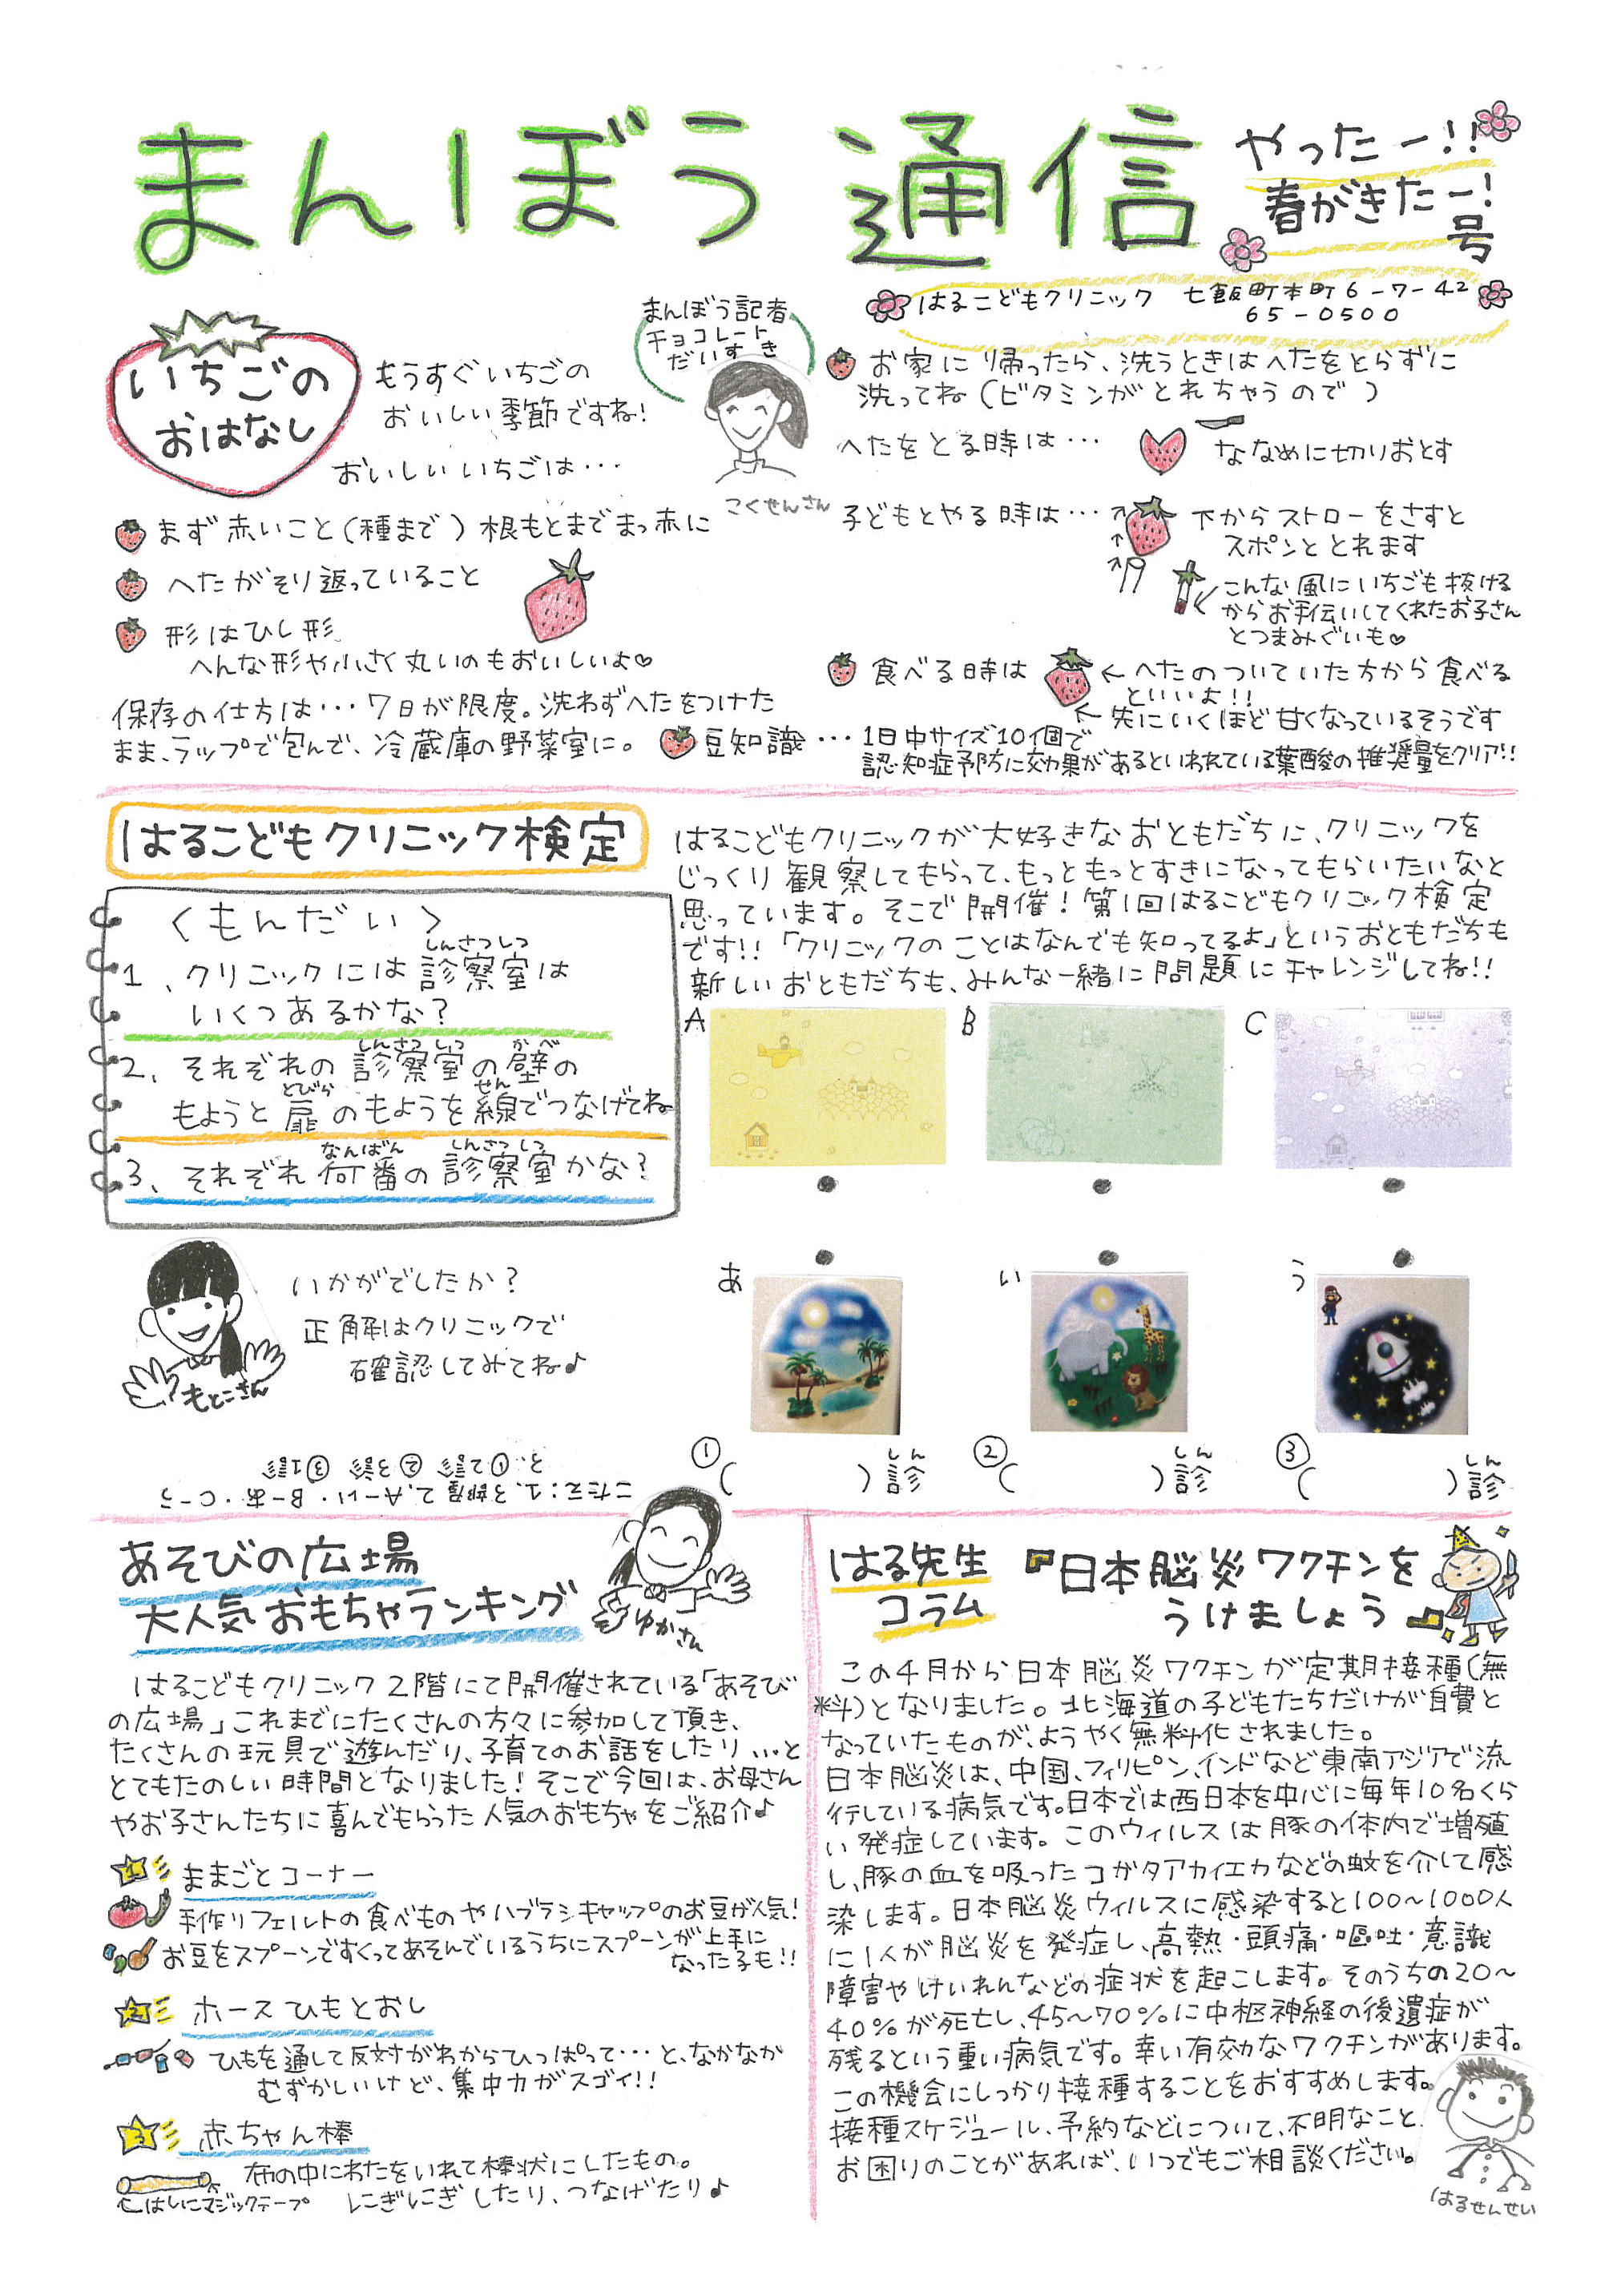 まんぼう通信
やったー!!
春がきたー!
号
はるこどもクリニック 七飯町本町6-7-42
65-0500
いちごの
おはなし
もうすぐいちごの
おいしい季節ですね!
おいしいいちごは…
まんぼう記者
チョコレート
だいすき
こくせんさん
まず赤いこと(種まで)根もとまでまっ赤に
へたがそり返っていること
形はひし形
へんな形や小さく丸いのもおいしいよ♡
保存の仕方は…7日が限度。洗わずへたをつけた
まま、ラップで包んで、冷蔵庫の野菜室に。
お家に帰ったら、洗うときはへたをとらずに
洗ってね(ビタミンがとれちゃうので)
へたをとる時は…
ななめに切りおとす
子どもとやる時は…
下からストローをさすと
スポンととれます
こんな風にいちごも抜ける
からお手伝いしてくれたお子さん
とつまみぐいも♡
食べる時は
←へたのついていた方から食べる
といいよ!!
←先にいくほど甘くなっているそうです
豆知識…1日中サイズ10個で
認知症予防に効果があるといわれている葉酸の推奨量をクリア!!
はるこどもクリニック検定
〈もんだい〉
しんさつしつ
1、クリニックには診察室は
いくつあるかな?
しんさつしつ かべ
2、それぞれの診察室の壁の
とびら せん
もようと扉のもようを線でつなげてね
なんばん しんさつしつ
3、それぞれ何番の診察室かな?
はるこどもクリニックが大好きなおともだちに、クリニックを
じっくり観察してもらって、もっともっとすきになってもらいたいなと
思っています。そこで開催!第1回はるこどもクリニック検定
です!!「クリニックのことはなんでも知ってるよ」というおともだちも
新しいおともだちも、みんな一緒に問題にチャレンジしてね!!
A
B
C
あ
い
う
しん
①( )診
しん
②( )診
しん
③( )診
もとこさん
いかがでしたか?
正解はクリニックで
確認してみてね♪
こたえ:1.3部屋 2.A-い・B-あ・C-う
3.①2診 ②3診 ③1診
あそびの広場
大人気おもちゃランキング
ゆかさん
はるこどもクリニック2階にて開催されている「あそび
の広場」これまでにたくさんの方々に参加して頂き、
たくさんの玩具で遊んだり、子育てのお話をしたり…と
とてもたのしい時間となりました!そこで今回は、お母さん
やお子さんたちに喜んでもらった人気のおもちゃをご紹介♪
1 ままごとコーナー
手作りフェルトの食べものやハブラシキャップのお豆が人気!
お豆をスプーンですくってあそんでいるうちにスプーンが上手に
なった子も!!
2 ホースひもとおし
ひもを通して反対がわからひっぱって…と、なかなか
むずかしいけど、集中力がスゴイ!!
3 赤ちゃん棒
布の中にわたをいれて棒状にしたもの。
←はしにマジックテープ にぎにぎしたり、つなげたり♪
はる先生
コラム
『日本脳炎ワクチンを
うけましょう』
この4月から日本脳炎ワクチンが定期接種(無
料)となりました。北海道の子どもたちだけが自費と
なっていたものが、ようやく無料化されました。
日本脳炎は、中国、フィリピン、インドなど東南アジアで流
行している病気です。日本では西日本を中心に毎年10名くら
い発症しています。このウィルスは豚の体内で増殖
し、豚の血を吸ったコガタアカイエカなどの蚊を介して感
染します。日本脳炎ウィルスに感染すると100〜1000人
に1人が脳炎を発症し、高熱・頭痛・嘔吐・意識
障害やけいれんなどの症状を起こします。そのうちの20〜
40%が死亡し、45〜70%に中枢神経の後遺症が
残るという重い病気です。幸い有効なワクチンがあります。
この機会にしっかり接種することをおすすめします。
接種スケジュール、予約などについて、不明なこと、
お困りのことがあれば、いつでもご相談ください。
はるせんせい